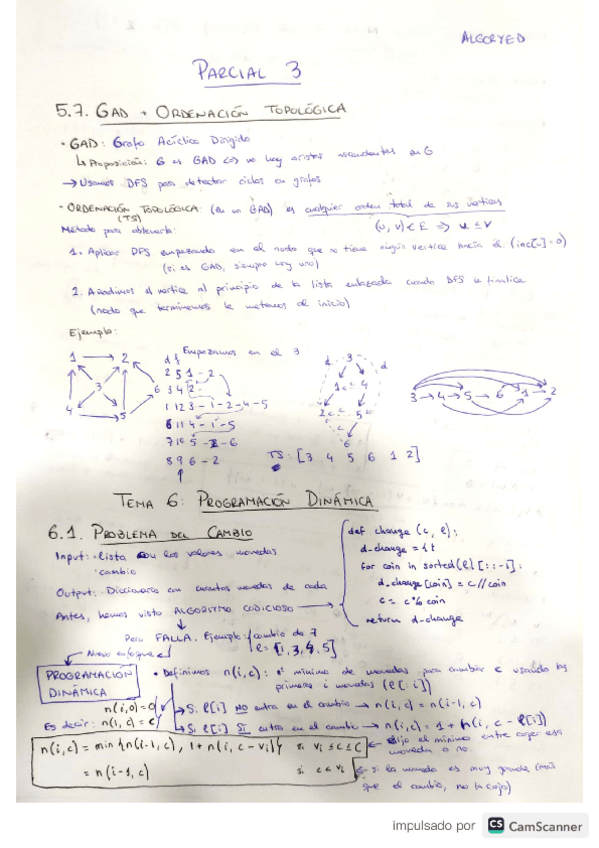 ALGORYED
PARCIAL 3
5.7. GAD + ORDENACIÓN TOPOLÓGICA
· GAD: Grafo Acíclico Dirigido
↳ Proposición: G es GAD <=> no hay aristas ascendentes en G
→ Usamos DFS para detectar ciclos en grafos
· ORDENACIÓN TOPOLÓGICA: (en un GAD) es cualquier orden total de sus vértices
(TS)
(u, v) ∈ E => u ≤ v
Método para obtenerla:
1. Aplicar DFS empezando en el nodo que no tiene ningún vertice hacia él. (inc[-] = 0)
(si es GAD, siempre hay uno)
2. Añadimos el vértice al principio de la lista enlazada cuando DFS le finalice
(nodo que terminamos le metemos al inicio)
Ejemplo:
Empezamos en el 3
d f
2 5 1 - 2
3 4 2 -
1 12 3 - 1 - 2 - 4 - 5
6 11 4 - 1 - 5
7 10 5 - 2 - 6
8 9 6 - 2
1 2 3 4 5 6
3 1 4 2 5 6
3 → 4 → 5 → 6 1 → 2
TS: [3 4 5 6 1 2]
TEMA 6: PROGRAMACIÓN DINÁMICA
6.1. PROBLEMA DEL CAMBIO
Input: · lista con los valores monedas
· cambio
Output: Diccionario con cuantas monedas de cada
Antes, hemos visto ALGORITMO CODICIOSO →
def change (c, l):
d-change = { }
for coin in sorted(l)[::-1]:
d-change[coin] = c // coin
c = c % coin
return d-change
Pero FALLA. Ejemplo: cambio de 7
l = [1, 3, 4, 5]
Nuevo enfoque
PROGRAMACIÓN DINÁMICA
· Definimos n(i, c): nº mínimo de monedas para cambiar c usando las
primeras i monedas (l[:i])
n(i, 0) = 0
Es decir: n(1, c) = c
→ Si l[i] NO entra en el cambio → n(i, c) = n(i-1, c)
→ Si l[i] SÍ entra en el cambio → n(i, c) = 1 + n(i, c - l[i])
n(i, c) = min {n(i-1, c), 1 + n(i, c - vi)} si vi ≤ c ≤ C
← Elijo el mínimo entre coger esa
moneda o no
= n(i-1, c) si c < vi
← si la moneda es muy grande (más
que el cambio, no la cojo)
impulsado por CS CamScanner